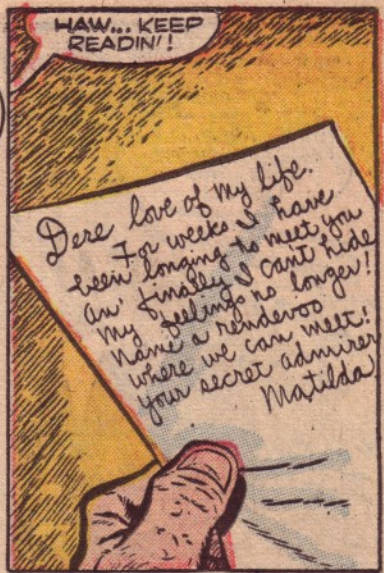 HAW... KEEP
READIN'!
Dere love of my life.
For weeks I have
been longing to meet you
an' finally I cant hide
my feelings no longer!
Name a rendevoo
where we can meet!
your secret admirer
Matilda